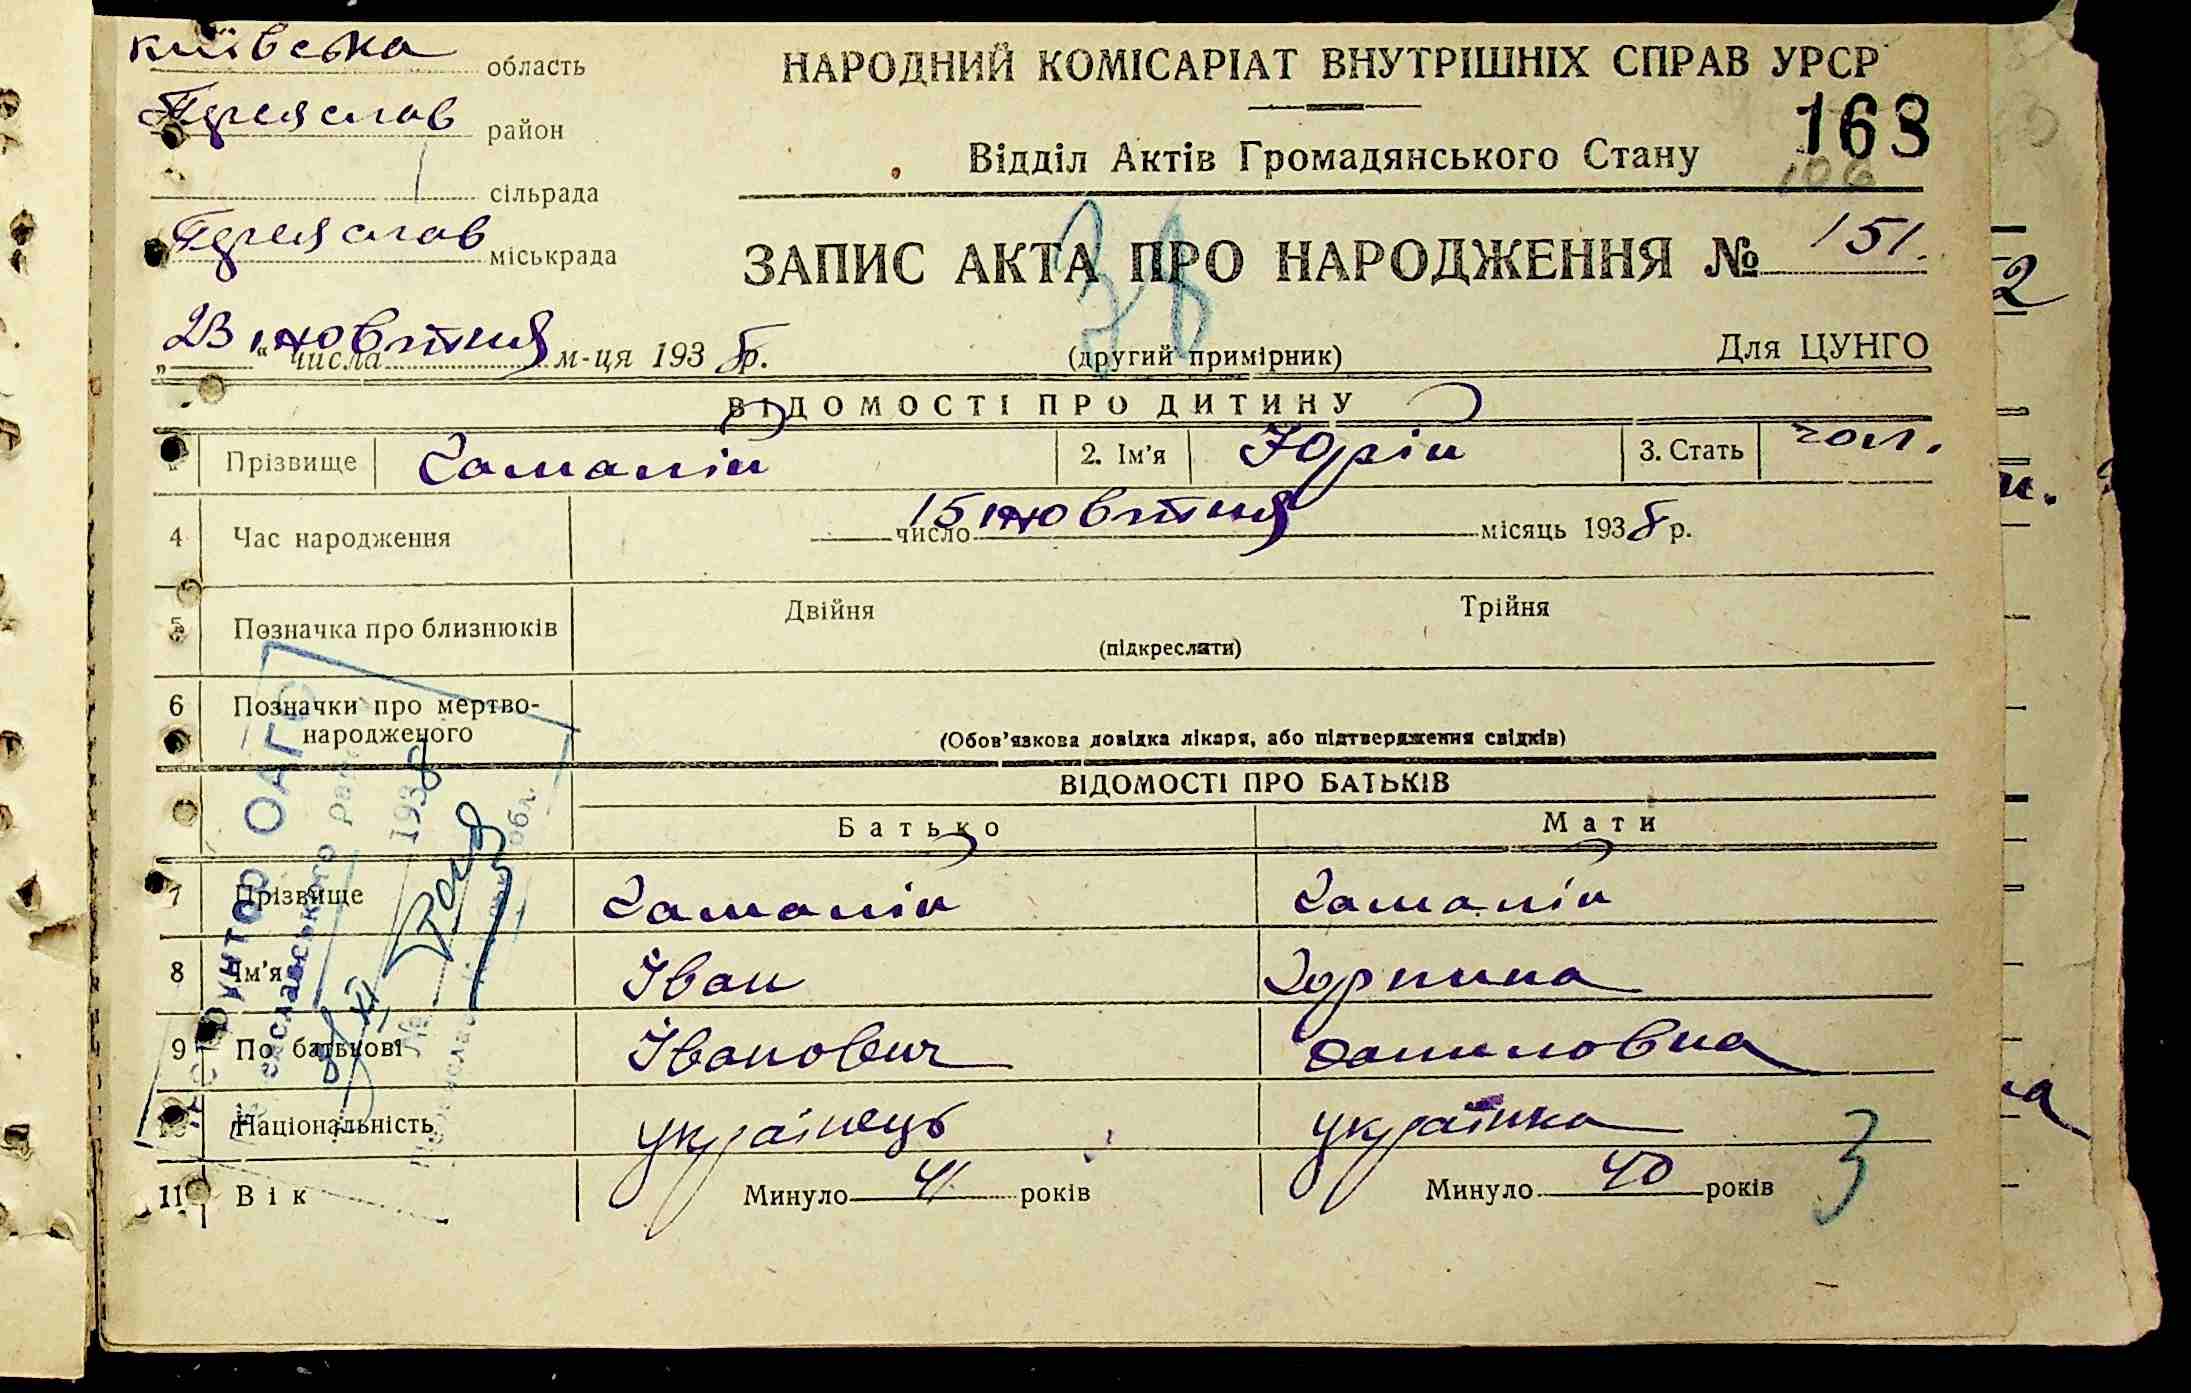 Київська область
Переяслав район
сільрада
Переяслав міськрада
НАРОДНИЙ КОМІСАРІАТ ВНУТРІШНІХ СПРАВ УРСР
163
106
Відділ Актів Громадянського Стану
ЗАПИС АКТА ПРО НАРОДЖЕННЯ № 151.
38
„23“ числа жовтня м-ця 1938 р.
(другий примірник)
Для ЦУНГО
ВІДОМОСТІ ПРО ДИТИНУ
Прізвище Гамалій 2. Ім'я Юрій 3. Стать чол.
4 Час народження 15 число жовтня місяць 1938 р.
5 Позначка про близнюків Двійня Трійня
(підкреслити)
6 Позначки про мертво-
народженого
(Обов'язкова довідка лікаря, або підтвердження свідків)
ВІДОМОСТІ ПРО БАТЬКІВ
Батько Мати
7 Прізвище Гамалій Гамалій
8 Ім'я Іван Горпина
9 По батькові Іванович Даниловна
10 Національність українець українка
11 Вік Минуло 41 років Минуло 40 років
3